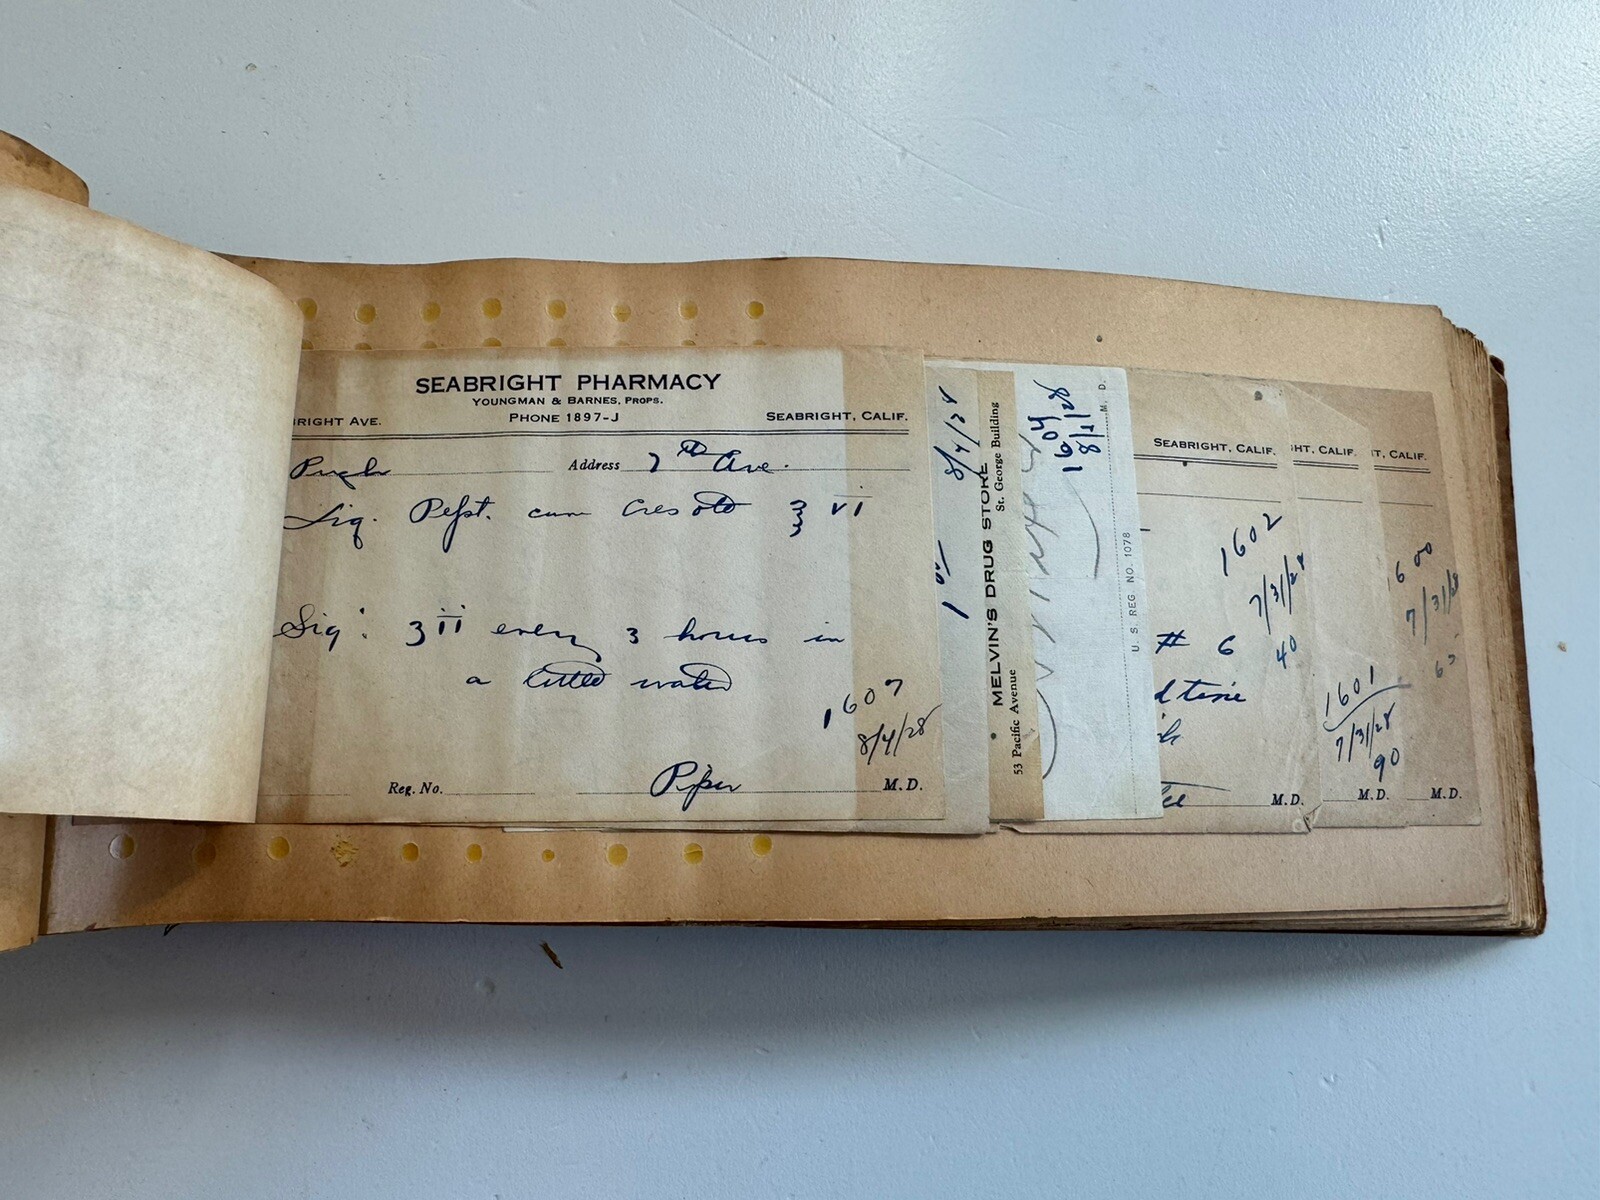 SEABRIGHT PHARMACY
YOUNGMAN & BARNES, PROPS.
RIGHT AVE. PHONE 1897-J SEABRIGHT, CALIF.
Pugh Address 7th Ave.
Liq. Pept. cum Creosote ʒ vi
Sig: ʒ ii every 3 hours in
a little water
1607
8/4/28
Reg. No. Piper M.D.
8/4/28
1 00
MELVIN'S DRUG STORE
53 Pacific Avenue St. George Building
1604
8/1/28
U. S. REG. NO. 1078 M. D.
SEABRIGHT, CALIF.
1602
7/31/28
# 6 40
M.D.
GHT, CALIF.
1601
7/31/28
90
M.D.
T, CALIF.
1600
7/31/28
M.D.